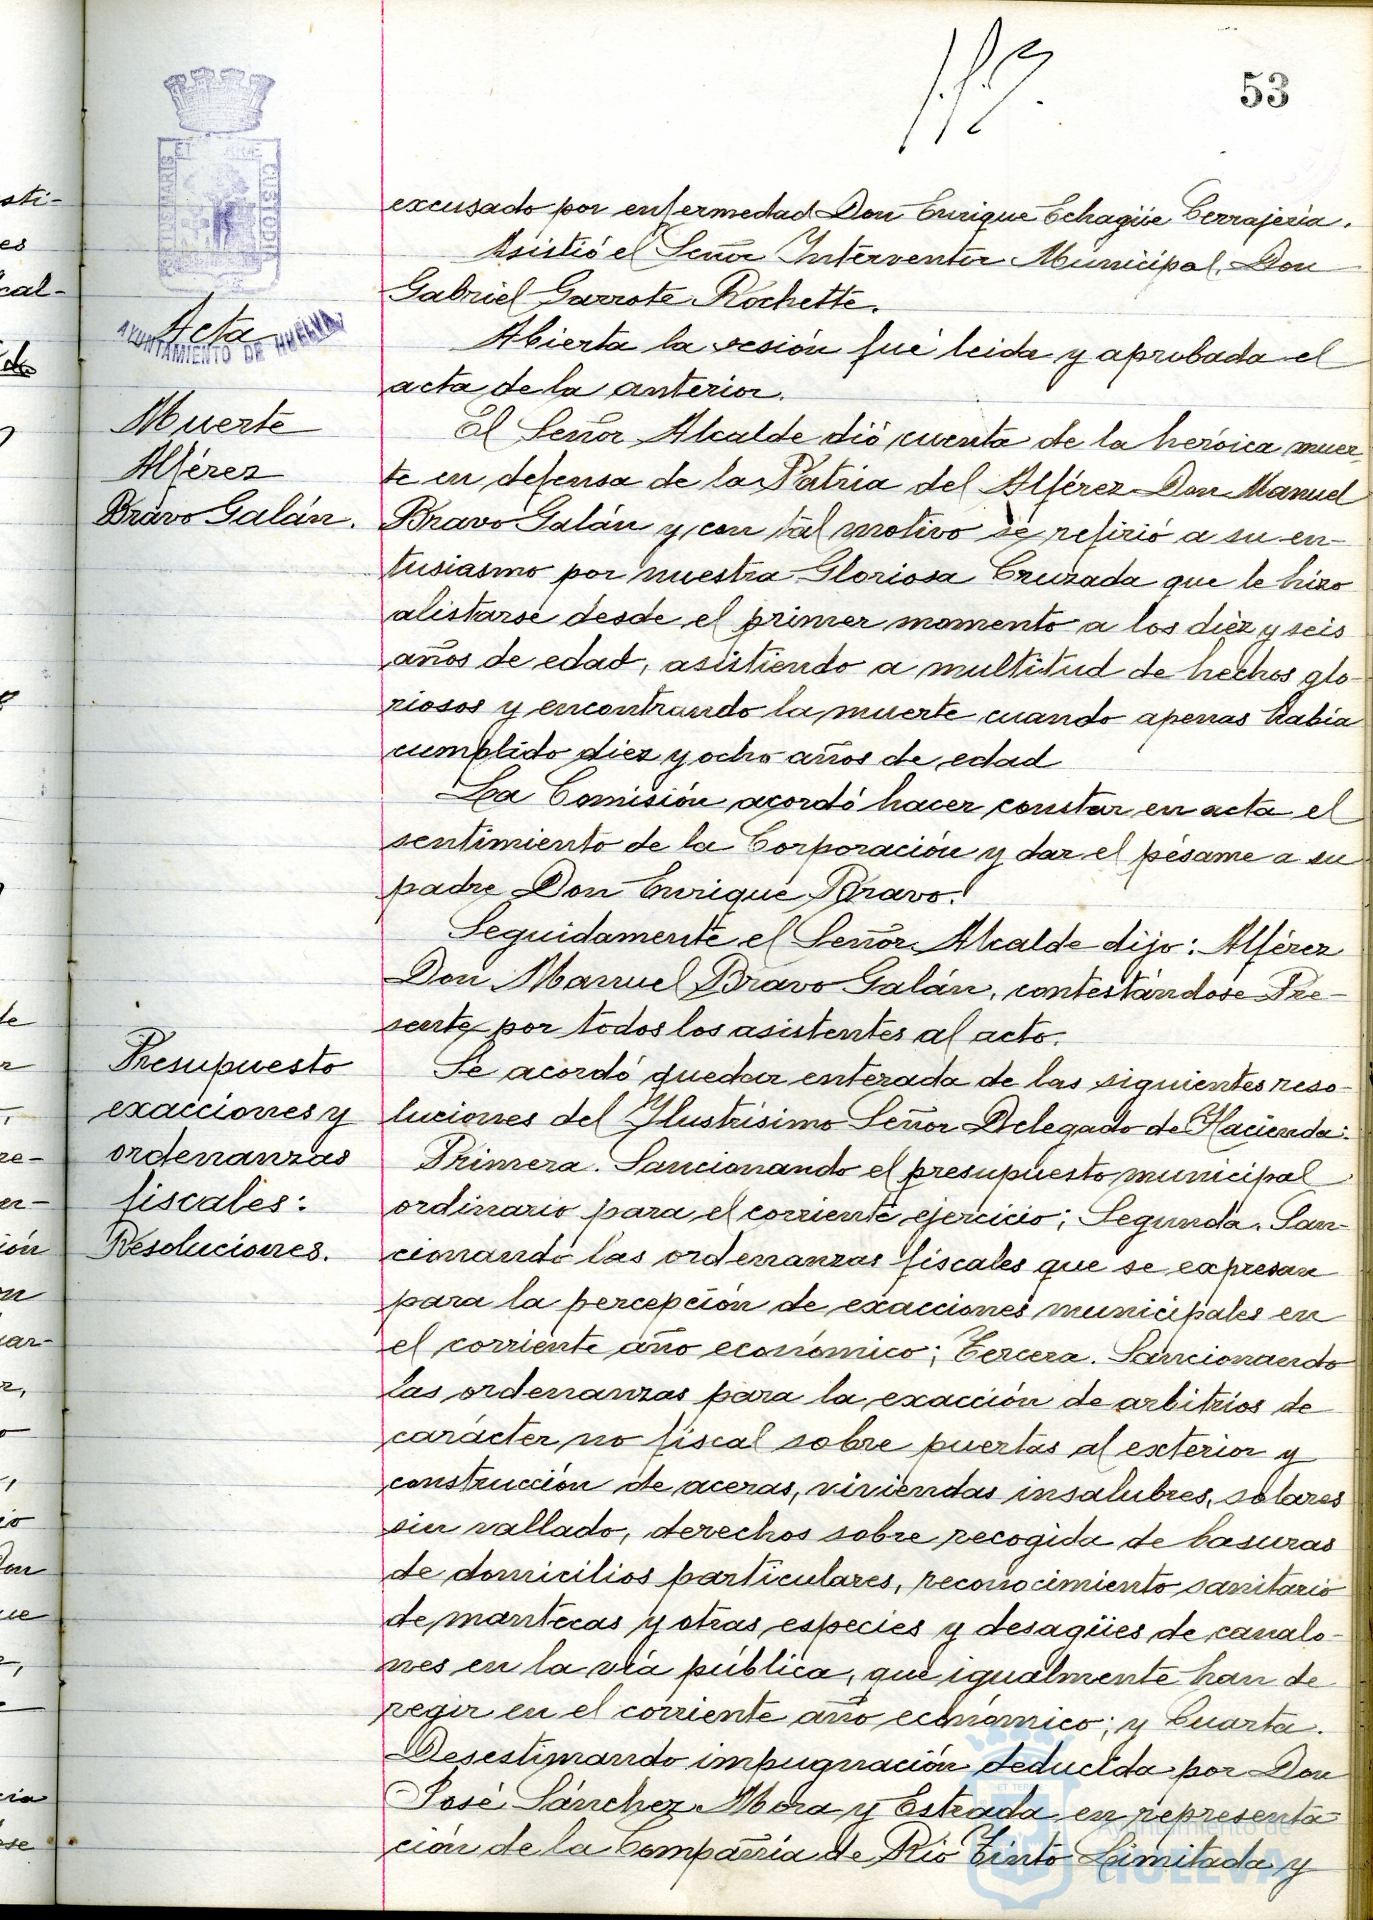 53
excusado por enfermedad Don Enrique Echagüe Cerrajería.
Asistió el Señor Interventor Municipal, Don
Gabriel Garrote Rochette.
Acta
AYUNTAMIENTO DE HUELVA
Abierta la sesión fué leida y aprobada el
acta de la anterior.
Muerte
Alférez
Bravo Galán.
El Señor Alcalde dió cuenta de la heróica muer-
te en defensa de la Patria del Alférez Don Manuel
Bravo Galán y con tal motivo se refirió a su en-
tusiasmo por nuestra Gloriosa Cruzada que le hizo
alistarse desde el primer momento a los diéz y seis
años de edad, asistiendo a multitud de hechos glo-
riosos y encontrando la muerte cuando apenas había
cumplido diez y ocho años de edad
La Comisión acordó hacer constar en acta el
sentimiento de la Corporación y dar el pésame a su
padre Don Enrique Bravo.
Seguidamente el Señor Alcalde dijo: Alférez
Don Manuel Bravo Galán, contestándose Pre-
sente por todos los asistentes al acto.
Presupuesto
exacciones y
ordenanzas
fiscales:
Resoluciones.
Se acordó quedar enterada de las siguientes reso-
luciones del Ylustrísimo Señor Delegado de Hacienda:
Primera. Sancionando el presupuesto municipal
ordinario para el corriente ejercicio; Segunda. San-
cionando las ordenanzas fiscales que se expresan
para la percepción de exacciones municipales en
el corriente año económico; Tercera. Sancionando
las ordenanzas para la exacción de arbitrios de
carácter no fiscal sobre puertas al exterior y
construcción de aceras, viviendas insalubres, solares
sin vallado, derechos sobre recogida de basuras
de domicilios particulares, reconocimiento sanitario
de mantecas y otras especies y desagües de canalo-
nes en la vía pública, que igualmente han de
regir en el corriente año económico; y Cuarta.
Desestimando impugnación deducida por Don
José Sánchez Mora y Estrada en representa-
ción de la Compañía de Rio Tinto Limitada y
Ayuntamiento de
HUELVA